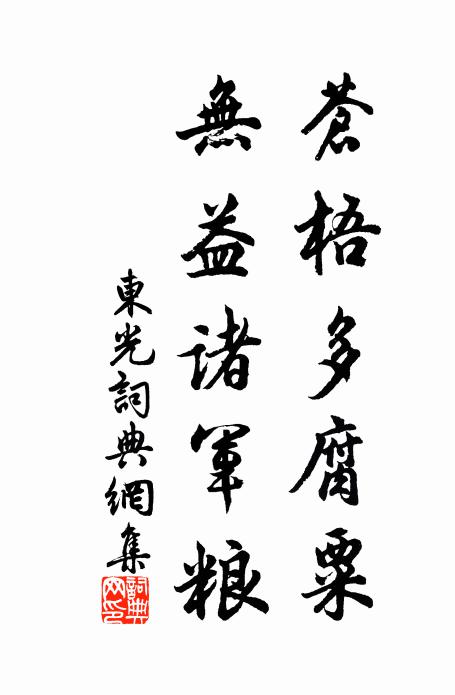 蒼梧多腐粟
無益諸軍粮
東光詞典網集
詞典
网印